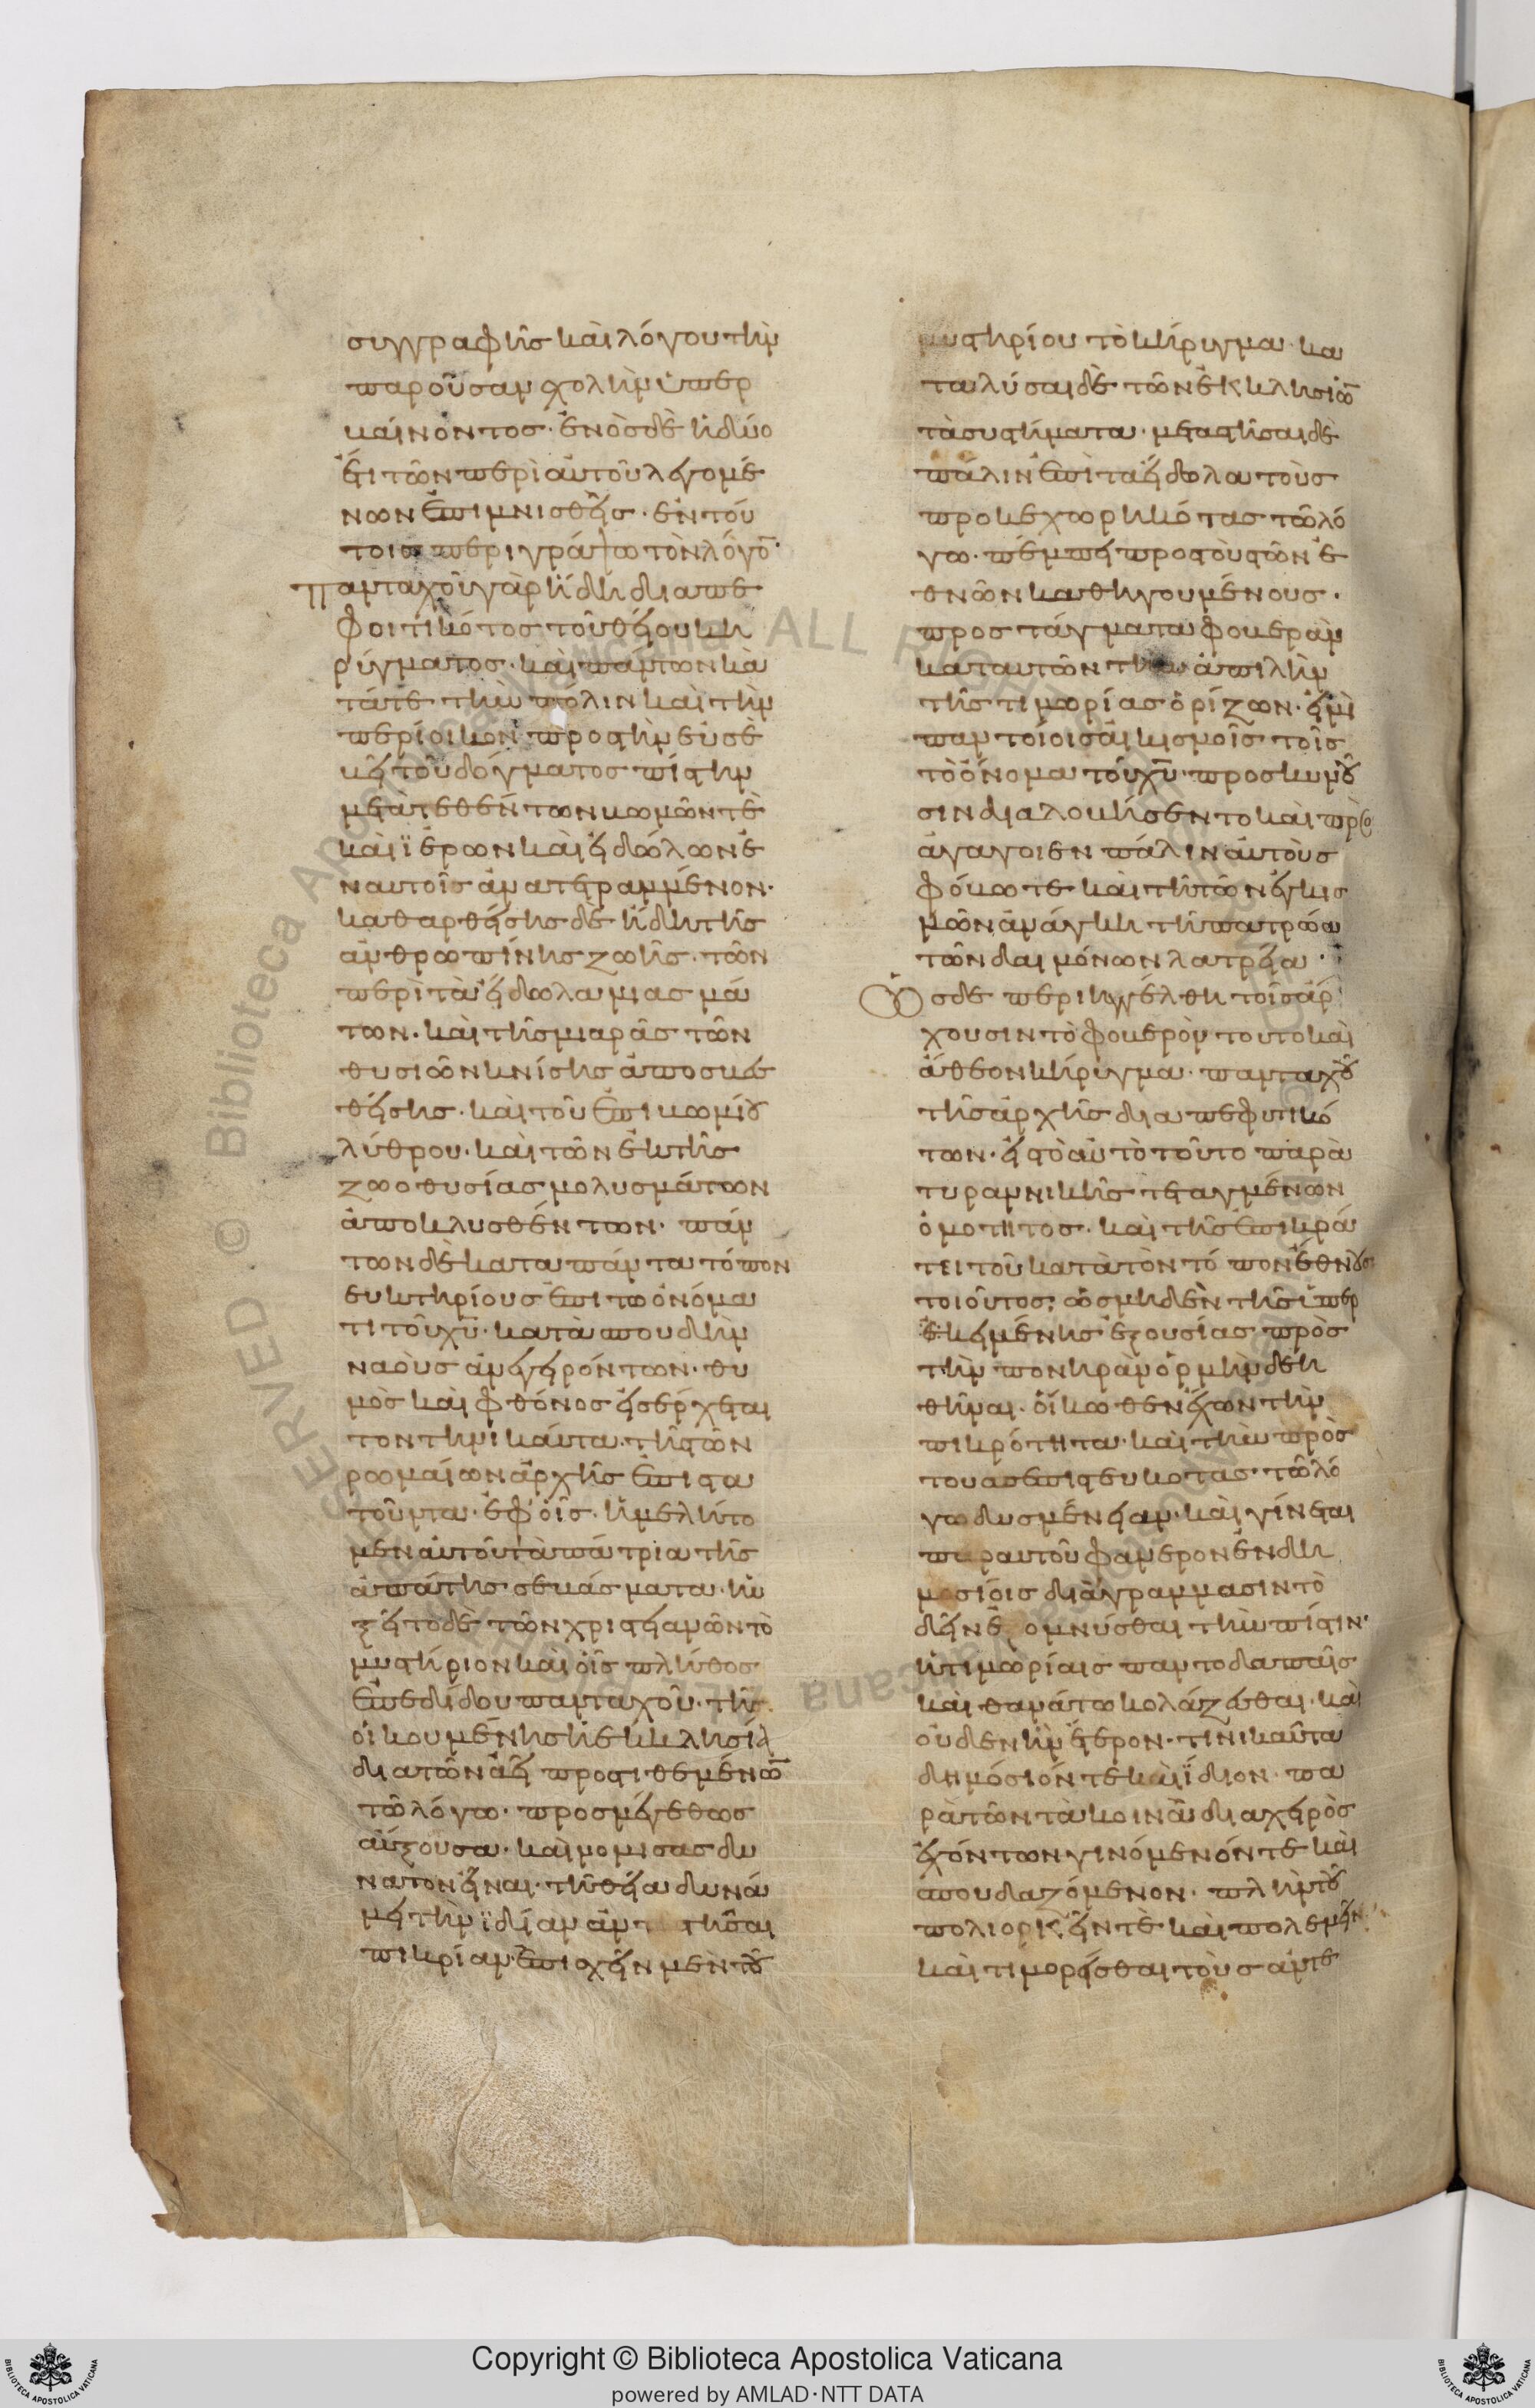 συγγραφῆς καὶ λόγου τὴν
παροῦσαν χολὴν ὑπερ
βαίνοντος· ἑνὸς δὲ ἢ δύο
ἔτι τῶν περὶ αὐτοῦ λεγομέ
νων ἐπιμνισθεὶς· ἐν τού
τοις περιγράψω τὸν λόγον·
Πανταχοῦ γὰρ ἤδη διαπε
φοιτικότος τοῦ θείου κη
ρύγματος· καὶ πάντων κα
τά τε τὴν πόλιν καὶ τὴν
περίοικον πρὸς τὴν εὐσε
βῆ τοῦ δόγματος πίστιν
μετατεθέντων βωμῶν τὲ
καὶ ϊερῶν καὶ εἰδώλων ἐ
ν αυτοῖς ἀνατετραμμένον·
καθαρθείσης δὲ ἤδη τῆς
ἀνθρωπίνης ζωῆς· τῶν
περὶ τὰ εἴδωλα μιασμά
των· καὶ τῆς μιαρᾶς τῶν
θυσιῶν κνίσης ἀποσβεσ
θείσης· καὶ τοῦ ἐπιβωμίου
λύθρου· καὶ τῶν ἐκ τῆς
ζωοθυσίας μολυσμάτων
ἀποκλυσθέντων· πάν
των δὲ κατα πάντα τόπον
ευκτηρίους ἐπι τω ὀνόμα
τι τοῦ χῦ· κατὰ σπουδὴν
ναοὺς ἀνεγειρόντων· θυ
μὸς καὶ φθόνος εἰσέρχεται
τον τηνικαύτα τῆς τῶν
ρωμαίων ἀρχῆς ἐπιστα
τοῦντα· ἐφ' οἷς· ἠμελεῖτο
μεν αὐτοῦ τὰ πάτρια τῆς
ἀπάτης σεβάσματα· ηὔ
ξει τὸ δὲ τῶν χριστειανῶν τὸ
μυστήριον καὶ εἰς πλῆθος
ἐπεδίδου πανταχοῦ· τῆς
οἰκουμένης ἡ ἐκκλησία
δια τῶν ἀεὶ προστιθεμένων
τῶ λόγω· προς μέγεθως
αὔξουσα· καὶ νομισας δυ
νατον εἶναι· τῆ θεία δυνά
μει τὴν ϊδίαν ἀντιστῆσαι
πικρίαν· ἐπισχεῖν μὲν τοῦ
μυστηρίου τὸ κήρυγμα· κα
ταλύσαι δὲ τῶν ἐκκλησιῶν
τὰ συστήματα· μεταστῆσαι δὲ
πάλιν ἐπὶ τα εἴδωλα τοὺς
προκεχωρηκότας τῶ λό
γω· πέμπει προς τοὺς τῶν ἐ
θνῶν καθηγουμένους·
προσ τάγματα φοβερὰν
κατ αυτῶν τὴν ἀπιλὴν
τῆς τιμωρίας ὁρίζων· εἰ μὴ
παντοίοις αἰκισμοῖς τοῖς
τὸ ὄνομα τοῦ χῦ· προσκυνοῦ
σιν διαλοβήσεντο καὶ προσ
άγαγοιεν πάλιν ἀυτοὺς
φόβω τε καὶ τῆ τῶν ἐκισ
μῶν ἀνάγκη τῆ πατρώα
τῶν δαιμόνων λατρεία·
Ὡς δε περιηγγέλθη τοῖς ἀρ
χουσιν τὸ φοβερὸν τουτο καὶ
ἄθεον κήρυγμα· πανταχοῦ
τῆς ἀρχῆς διαπεφυτικό
των· εἰς τὸ αὐτὸ τοῦτο παρὰ
τυραννικῆς τεταγμένων
ὁμοτητος· καὶ τῆς ἐπικρά
τει τοῦ κατὰ τὸν τόπον ἔθνους
τοιοῦτος· ὡς μηδὲν τῆς ὑπερ
έκειμένης ἐξουσίας πρὸς
τὴν πονηρὰν ὁρμὴν δεη
θῆναι· οἴκωθεν ἔχων τὴν
πικρότητα· καὶ τὴν πρὸς
του ασεπιστευκοτας· τῶ λό
γω δυσμένειαν· καὶ γίνεται
παραυτοῦ φανερον ἐν δη
μοσίοις διὰγραμμασιν τὸ
δεῖν ἐξομνύσθαι τὴν πίστιν·
ἢ τιμωρίαις παντοδαπαῖς
καὶ θανάτω κολάζεσθαι· καὶ
οὐδεν ἦν ἕτερον· τινικαῦτα
δημόσιόν τὲ καὶ ἴδιον· πα
ρὰ τῶν τὰ κοινὰ διαχειρὸς
ἐχόντων γινόμενόν τε καὶ
σπουδαζόμενον· πλὴν τοῦ
πολιορκεῖν τὲ καὶ πολεμεῖν
καὶ τιμορεῖσθαι τοὺς ἀντε
Copyright © Biblioteca Apostolica Vaticana
powered by AMLAD·NTT DATA